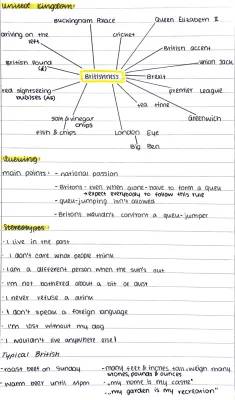 United Kingdom:
Buckingham Palace
Queen Elizabeth II
driving on the
left
cricket
British accent
British Pound
(£)
Union Jack
Britishness
Brexit
red sightseeing
premier League
tea time
Greenwich
salt & vinegar
chips
fish & chips
London Eye
Big Ben
Queuing:
main points: - national passion
- Britons - even when alone - have to form a queue
+ expect everybody to follow this rule
- queue-jumping isn't allowed
- Britons wouldn't confront a queue-jumper
Stereotypes
- I live in the past
- I don't care what people think
- I am a different person when the sun's out
- I'm not bothered about a bit of dust
- I never refuse a drink
- I don't speak a foreign language
- I'm lost without my dog
- I wouldn't live anywhere else!
Typical British
- roast beef on Sunday
- many feet & inches tall, weigh many
stones, pounds & ounces
- warm beer until 11pm
- "my home is my castle"
- "my garden is my recreation"